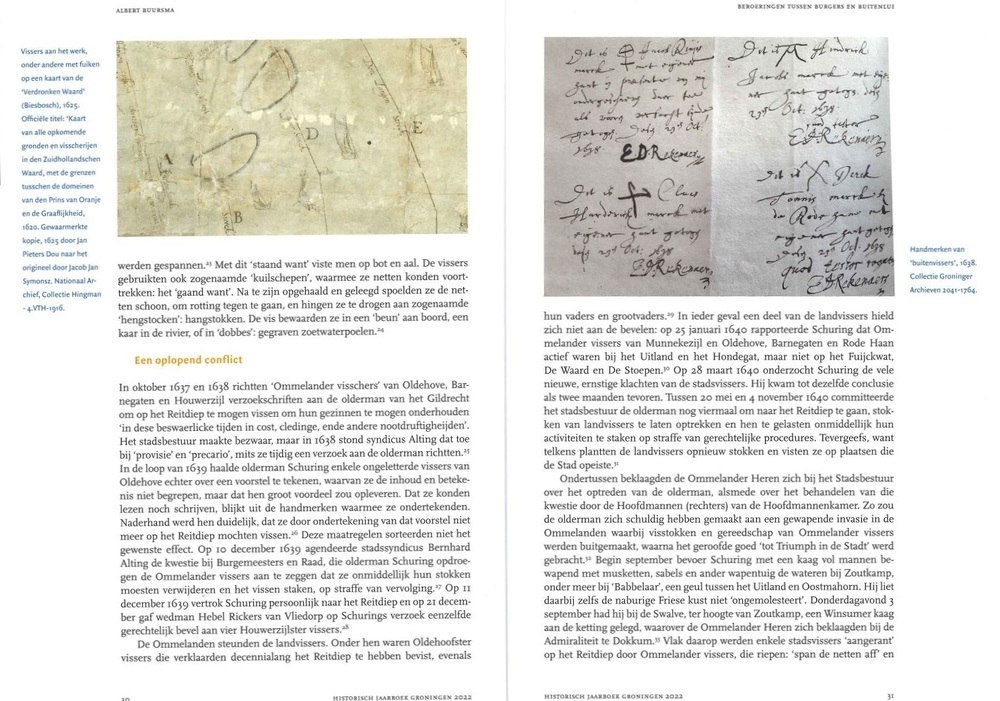 ALBERT BUURSMA
Vissers aan het werk,
onder andere met fuiken
op een kaart van de
'Verdronken Waard'
(Biesbosch), 1625.
Officiële titel: 'Kaart
van alle opkomende
gronden en visscherijen
in den Zuidhollandschen
Waard, met de grenzen
tusschen de domeinen
van den Prins van Oranje
en de Graaflijkheid,
1620. Gewaarmerkte
kopie, 1625 door Jan
Pieters Dou naar het
origineel door Jacob Jan
Symonsz. Nationaal Ar-
chief, Collectie Hingman
- 4.VTH-1916.
A
D
E
B
werden gespannen.²³ Met dit 'staand want' viste men op bot en aal. De vissers
gebruikten ook zogenaamde 'kuilschepen', waarmee ze netten konden voort-
trekken: het 'gaand want'. Na te zijn opgehaald en geleegd spoelden ze de net-
ten schoon, om rotting tegen te gaan, en hingen ze te drogen aan zogenaamde
'hengstocken': hangstokken. De vis bewaarden ze in een 'beun' aan boord, een
kaar in de rivier, of in 'dobbes': gegraven zoetwaterpoelen.²⁴
Een oplopend conflict
In oktober 1637 en 1638 richtten 'Ommelander visschers' van Oldehove, Bar-
negaten en Houwerzijl verzoekschriften aan de olderman van het Gildrecht
om op het Reitdiep te mogen vissen om hun gezinnen te mogen onderhouden
'in dese beswaerlicke tijden in cost, cledinge, ende andere nootdruftigheijden'.
Het stadsbestuur maakte bezwaar, maar in 1638 stond syndicus Alting dat toe
bij 'provisie' en 'precario', mits ze tijdig een verzoek aan de olderman richtten.²⁵
In de loop van 1639 haalde olderman Schuring enkele ongeletterde vissers van
Oldehove echter over een voorstel te tekenen, waarvan ze de inhoud en beteke-
nis niet begrepen, maar dat hen groot voordeel zou opleveren. Dat ze konden
lezen noch schrijven, blijkt uit de handmerken waarmee ze ondertekenden.
Naderhand werd hen duidelijk, dat ze door ondertekening van dat voorstel niet
meer op het Reitdiep mochten vissen.²⁶ Deze maatregelen sorteerden niet het
gewenste effect. Op 10 december 1639 agendeerde stadssyndicus Bernhard
Alting de kwestie bij Burgemeesters en Raad, die olderman Schuring opdroe-
gen de Ommelander vissers aan te zeggen dat ze onmiddellijk hun stokken
moesten verwijderen en het vissen staken, op straffe van vervolging.²⁷ Op 11
december 1639 vertrok Schuring persoonlijk naar het Reitdiep en op 21 decem-
ber gaf wedman Hebel Rickers van Vliedorp op Schurings verzoek eenzelfde
gerechtelijk bevel aan vier Houwerzijlster vissers.²⁸
De Ommelanden steunden de landvissers. Onder hen waren Oldehoofster
vissers die verklaarden decennialang het Reitdiep te hebben bevist, evenals
30
HISTORISCH JAARBOEK GRONINGEN 2022
BEROERINGEN TUSSEN BURGERS EN BUITENLUI
Handmerken van
'buitenvissers', 1638.
Collectie Groninger
Archieven 2041-1764.
hun vaders en grootvaders.²⁹ In ieder geval een deel van de landvissers hield
zich niet aan de bevelen: op 25 januari 1640 rapporteerde Schuring dat Om-
melander vissers van Munnekezijl en Oldehove, Barnegaten en Rode Haan
actief waren bij het Uitland en het Hondegat, maar niet op het Fuijckwat,
De Waard en De Stoepen.³⁰ Op 28 maart 1640 onderzocht Schuring de vele
nieuwe, ernstige klachten van de stadsvissers. Hij kwam tot dezelfde conclusie
als twee maanden tevoren. Tussen 20 mei en 4 november 1640 committeerde
het stadsbestuur de olderman nog viermaal om naar het Reitdiep te gaan, stok-
ken van landvissers te laten optrekken en hen te gelasten onmiddellijk hun
activiteiten te staken op straffe van gerechtelijke procedures. Tevergeefs, want
telkens plantten de landvissers opnieuw stokken en visten ze op plaatsen die
de Stad opeiste.³¹
Ondertussen beklaagden de Ommelander Heren zich bij het Stadsbestuur
over het optreden van de olderman, alsmede over het behandelen van die
kwestie door de Hoofdmannen (rechters) van de Hoofdmannenkamer. Zo zou
de olderman zich schuldig hebben gemaakt aan een gewapende invasie in de
Ommelanden waarbij visstokken en gereedschap van Ommelander vissers
werden buitgemaakt, waarna het geroofde goed 'tot Triumph in de Stadt' werd
gebracht.³² Begin september bevoer Schuring met een kaag vol mannen be-
wapend met musketten, sabels en ander wapentuig de wateren bij Zoutkamp,
onder meer bij 'Babbelaar', een geul tussen het Uitland en Oostmahorn. Hij liet
daarbij zelfs de naburige Friese kust niet 'ongemolesteert'. Donderdagavond 3
september had hij bij de Swalve, ter hoogte van Zoutkamp, een Winsumer kaag
aan de ketting gelegd, waarover de Ommelander Heren zich beklaagden bij de
Admiraliteit te Dokkum.³³ Vlak daarop werden enkele stadsvissers 'aangerant'
op het Reitdiep door Ommelander vissers, die riepen: 'span de netten aff' en
HISTORISCH JAARBOEK GRONINGEN 2022
31